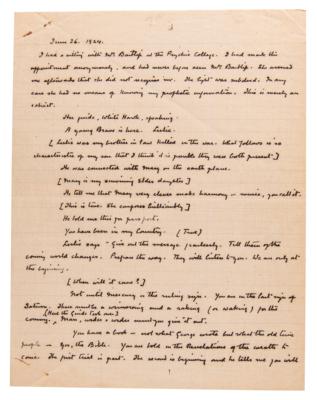 June 26. 1924.
I had a sitting with Mrs Barthop at the Psychic College. I had made this
appointment anonymously, and had never before seen Mrs Barthop. She assured
me afterwards that she did not recognise me. The light was subdued. In any
case she had no means of knowing my prophetic information. This is merely an
extract.
Her guide, White Hawk, speaking.
A young Brave is here. Leslie.
[Leslie was my brother in law killed in the war. What follows is so
characteristic of my son that I think it is possible they were both present]
He was connected with Mary on the earth plane.
[Mary is my surviving elder daughter]
He tell me that Mary very clever make harmony or music, you call it.
[This is true. She composes brilliantly]
He told me this for passport.
You have been in my Country. (True)
Leslie says "Give out the message fearlessly. Tell them of the
coming world changes. Prepare the way. They will listen to you. We are only at
the beginning.
[When will it come?]
Not until Mercury is the ruling sign. You are in the last sign of
Saturn. There must be a winnowing and a raking (or waking) for the
coming, (Here the Guide took over) Man, under & under must you give it out.
You have a book — not what George wrote but what the old time
people — Yes, the Bible. You are told in the Revelations of the wrath to
come. The first trial is past. The second is beginning and he tells me you will